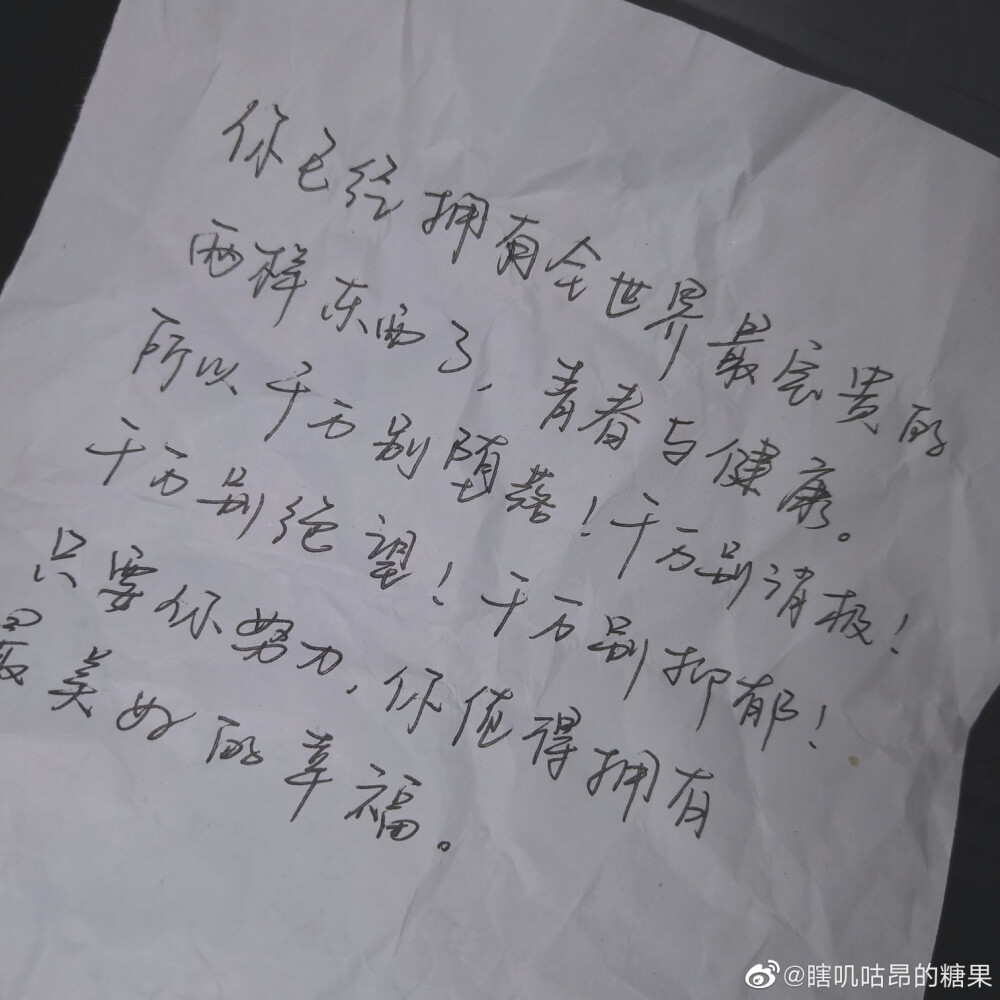 你已经拥有全世界最宝贵的
两样东西了，青春与健康。
所以千万别堕落！千万别消极！
千万别绝望！千万别抑郁！
只要你努力，你值得拥有
最美好的幸福。
@瞎叽咕昂的糖果